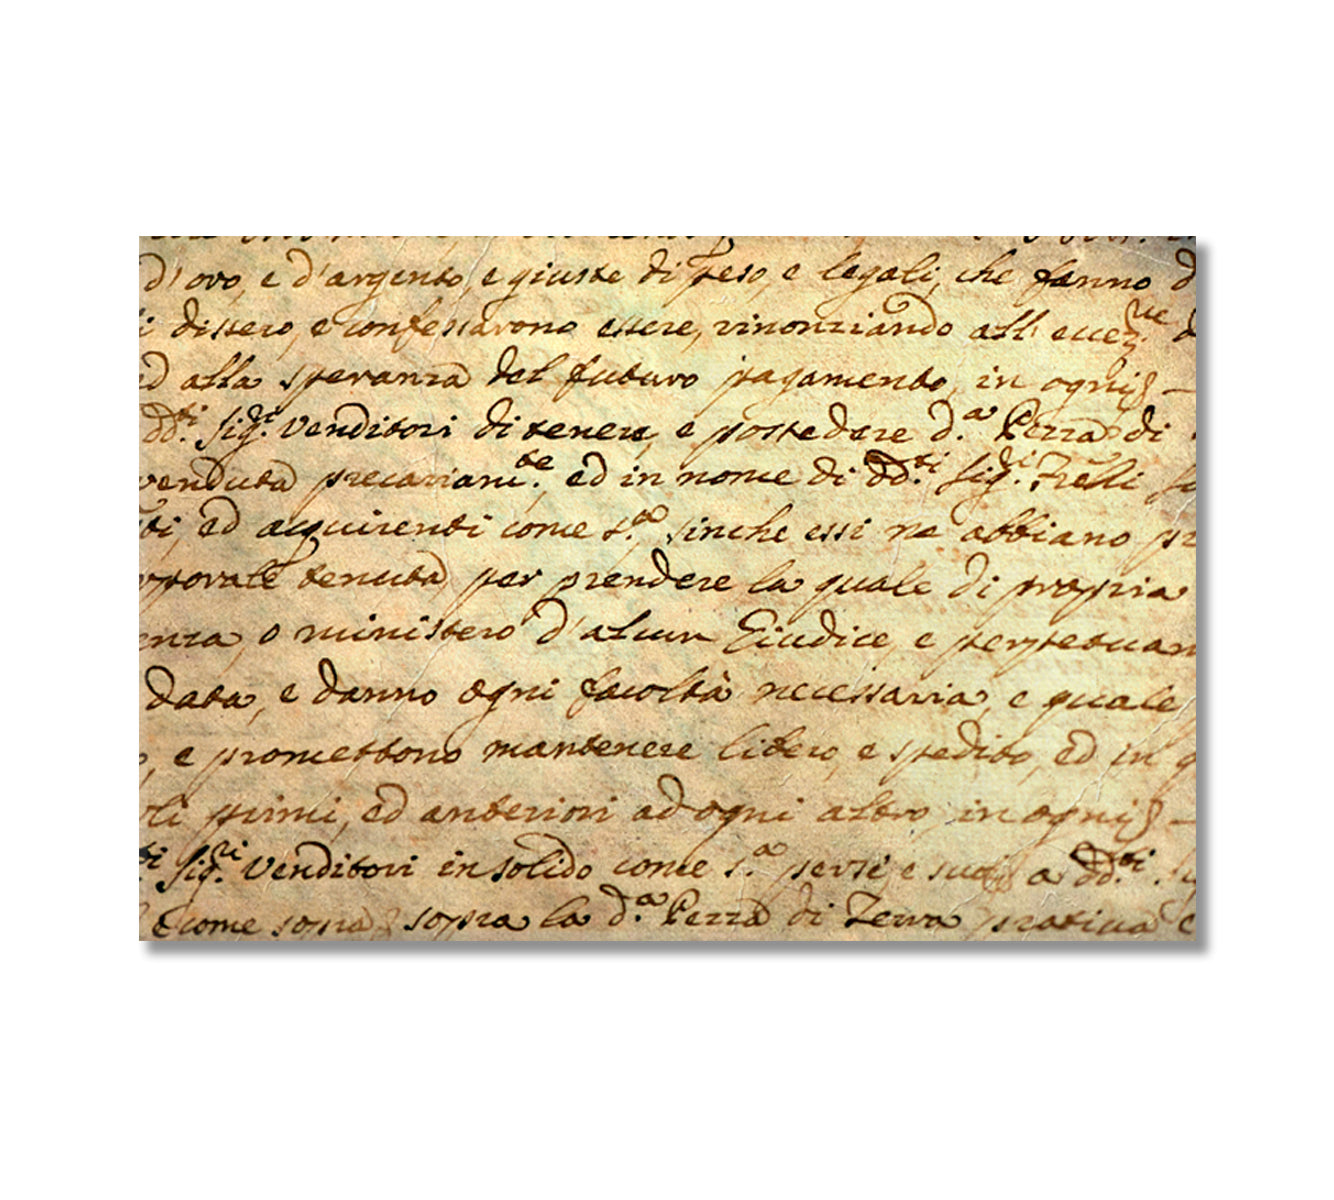 d'oro, e d'argento, e giuste di peso, e legali, che fanno
dissero, e confessarono essere, rinonziando all' eccez.ne
ed alla speranza del futuro pagamento, in ogni
dd.ti Sig.ri Venditori di tenere, e possedere d.a Pezza di
venduta precariam.te ed in nome di dd.ti Sig.ri Frelli
ed acquirenti come s.a, sinche essi ne abbiano
tenuta per prendere la quale di propria
o ministero d'alcun Giudice, e
data, e danno ogni facoltà necessaria, e quale
e promettono mantenere libero, e spedito, ed in
primi, ed anteriori ad ogni altro, in ogni
Sig.ri Venditori in solido come s.a per se, e suoi a dd.ti
e come sopra sopra la d.a Pezza di Terra prativa